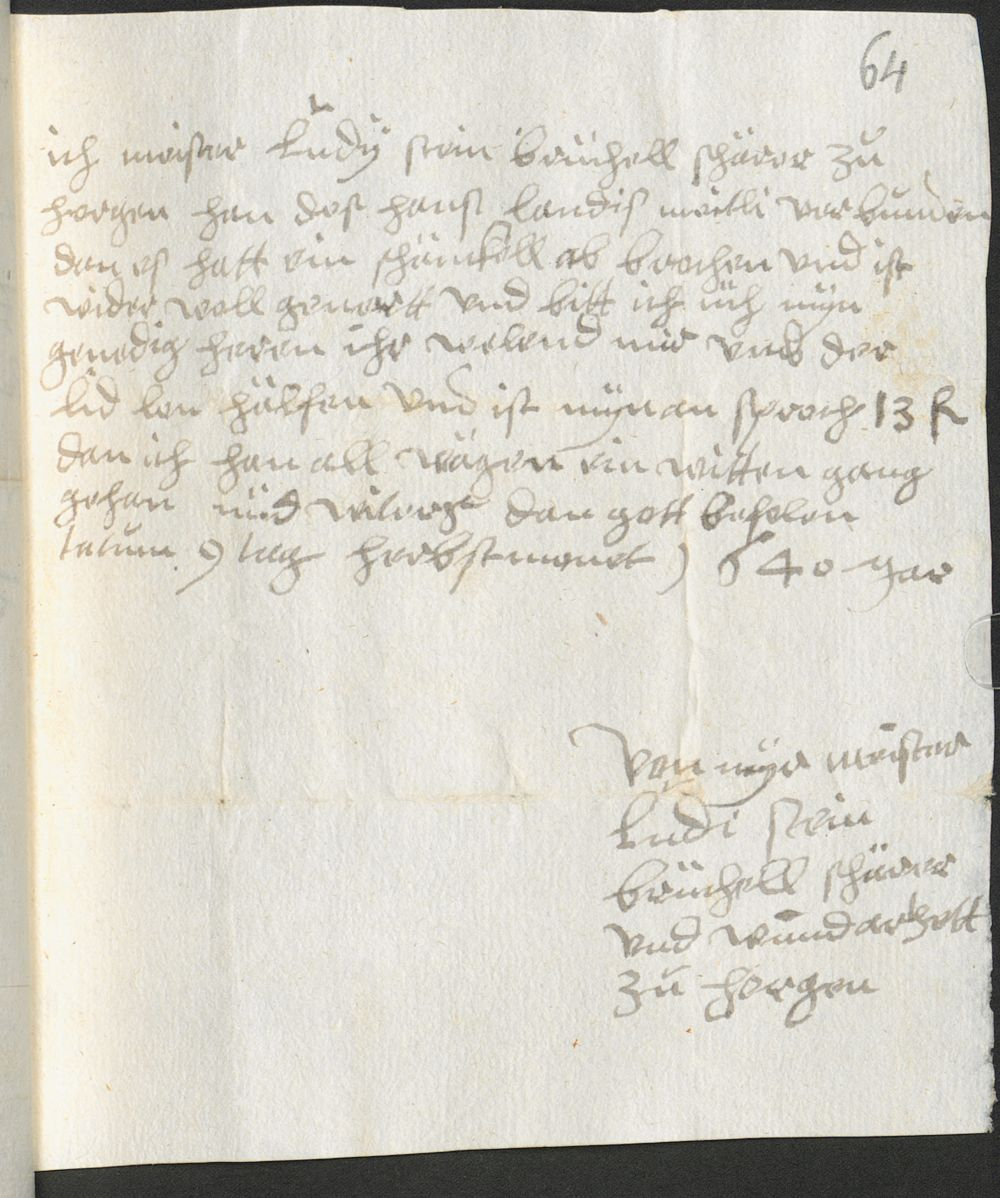 64
ich meister Ludÿ stein brüchell schärer zu
horgen han des hanß landiß meitli verbunden
dan es hatt ein schänckell ab brochen und ist
wider woll genertt und bitt ich üch myn
genedig heren ihr welend mir umb der
lid lon hälfen und ist mÿn an sproch 13 fl
dan ich han all wägen ein witten gang
gehan nüd witers dan gott befolen
tatum 9 tag herbstmonet 1640 gar
Von mÿr meister
Ludi stein
brüchell schärer
und wundartzett
zu horgen